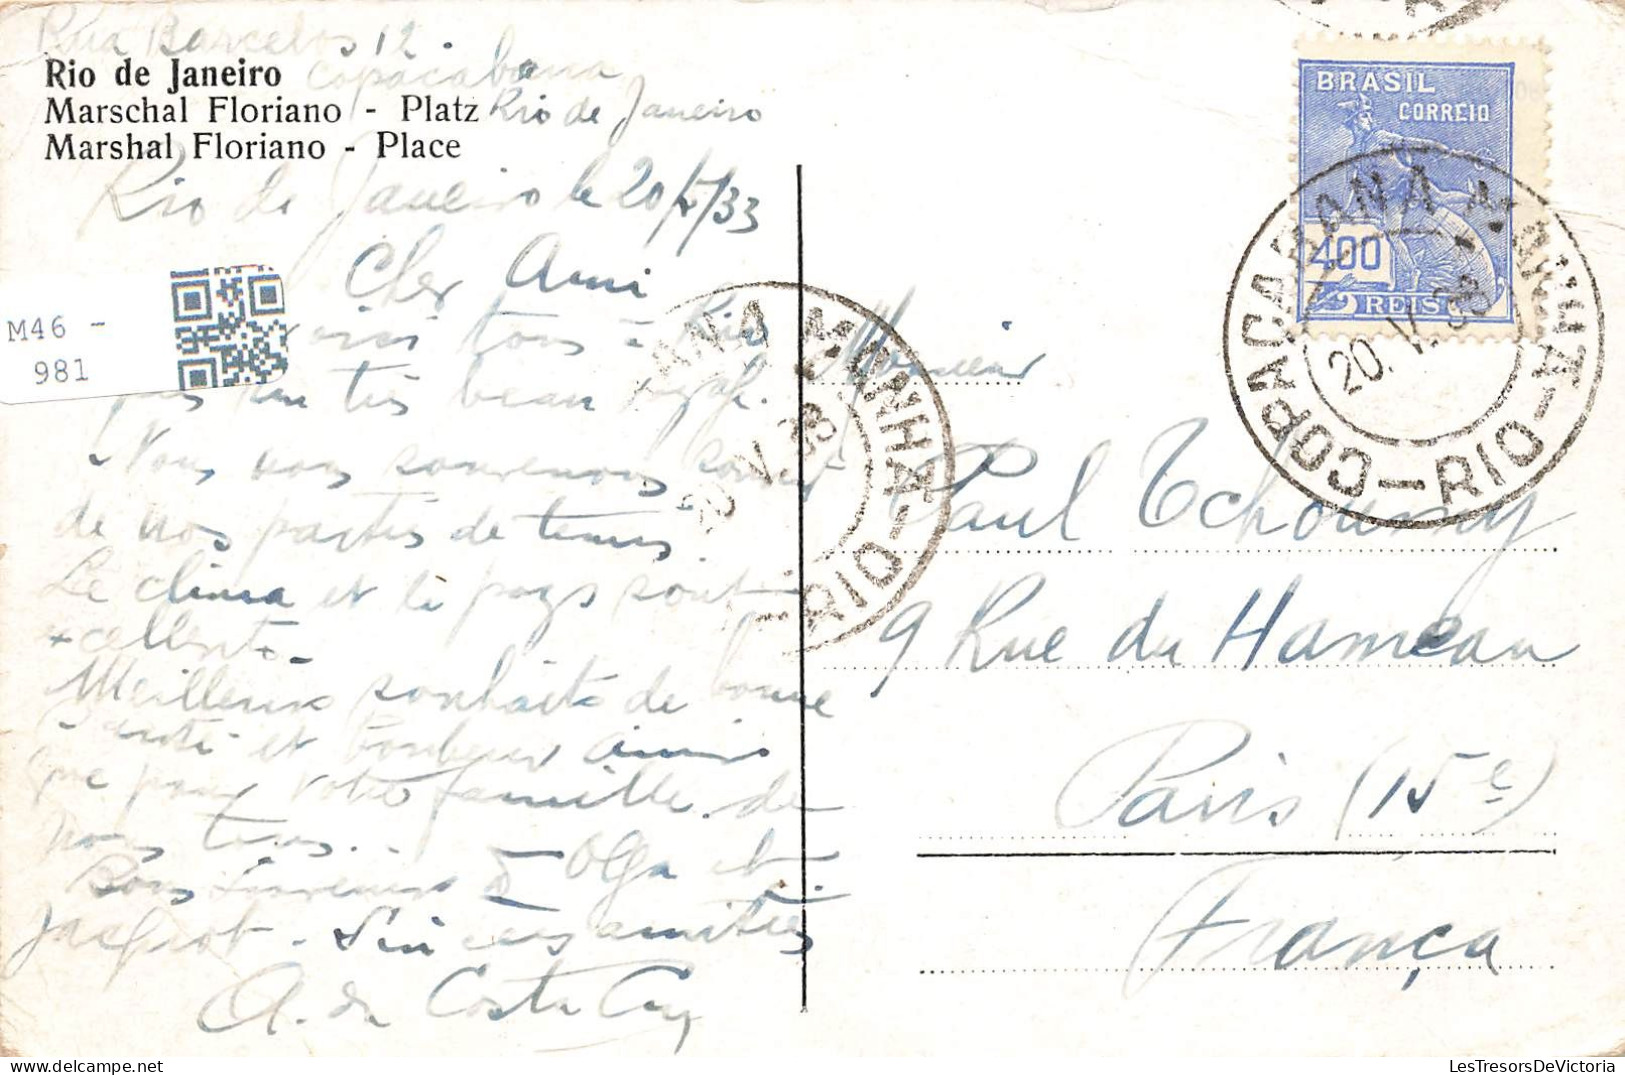 Rua Barcelos 12
Copacabana
Rio de Janeiro
Rio de Janeiro
Marschal Floriano - Platz
Marshal Floriano - Place
Rio de Janeiro le 20/5/33
Cher Ami
voici tous à Rio
très beau
Nous nous souvenons
de nos parties de tennis.
Le clima et le pays sont
excellents.
Meilleurs souhaits de bonne
santé et bonheur ainsi
que pour votre famille de
nous tous.
Bons Souvenirs à Olga et
Sincères amitiés
A. da Costa
M46 -
981
BRASIL
CORREIO
400
REIS
COPACABANA MANHÃ - RIO -
20.V.33
ANA MANHÃ - RIO -
20 V 33
Monsieur
Paul Tchourny
9 Rue du Hameau
Paris (15e)
França
LesTresorsDeVictoria